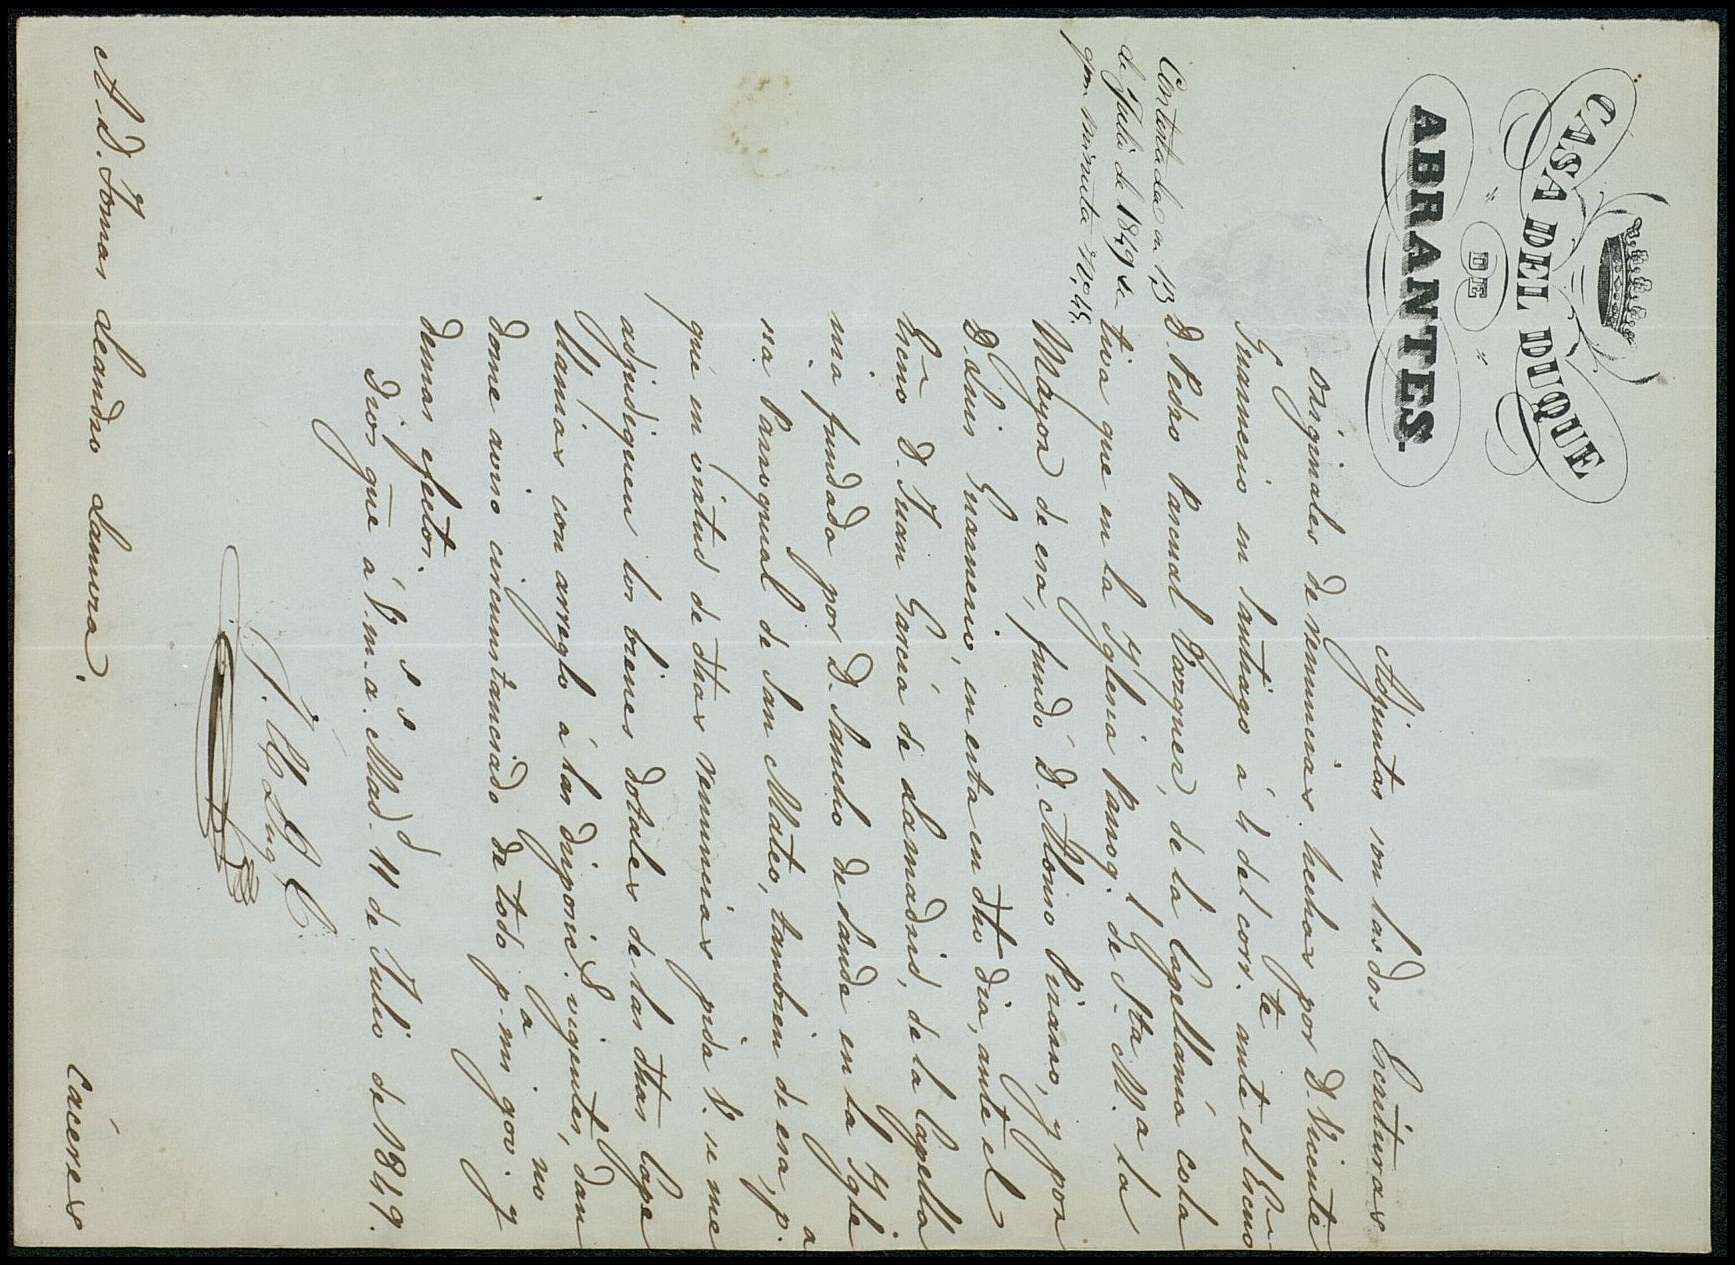 CASA DEL DUQUE
DE
ABRANTES.
Contestada en 13
de Julio de 1849 se
gun minuta N.º 45.
Adjuntas son las dos Escrituras
originales de renuncias hechas por D. Vicente
Guarnerio en Santiago á 4 del corr.te ante el Escno
D. Pedro Pascual Vazquez, de la Capellanía cola
tiva que en la Yglesia Parroq.l de S.ta M.a la
Mayor de esa, fundó D. Alonso Pizarro, y por
D. Luis Guarnerio, en esta en dho dia, ante el
Escno D. Juan García de Lamadrid, de la Capella
nia fundada por D. Sancho de Sande en la Ygle
sia Parroquial de San Mateo, tambien de esa, p.a
que en virtud de dhas renuncias pida V. se me
adjudiquen los bienes dotales de las dhas Cape
llanías con arreglo á las disposic.s vigentes, dan
dome aviso circunstanciado de todo p.a mi gov.no y
demas efectos.
Dios gue á V. m.s a.s Mad.d 11 de Julio de 1849.
A D. Tomas Leandro Lamora.
Cáceres